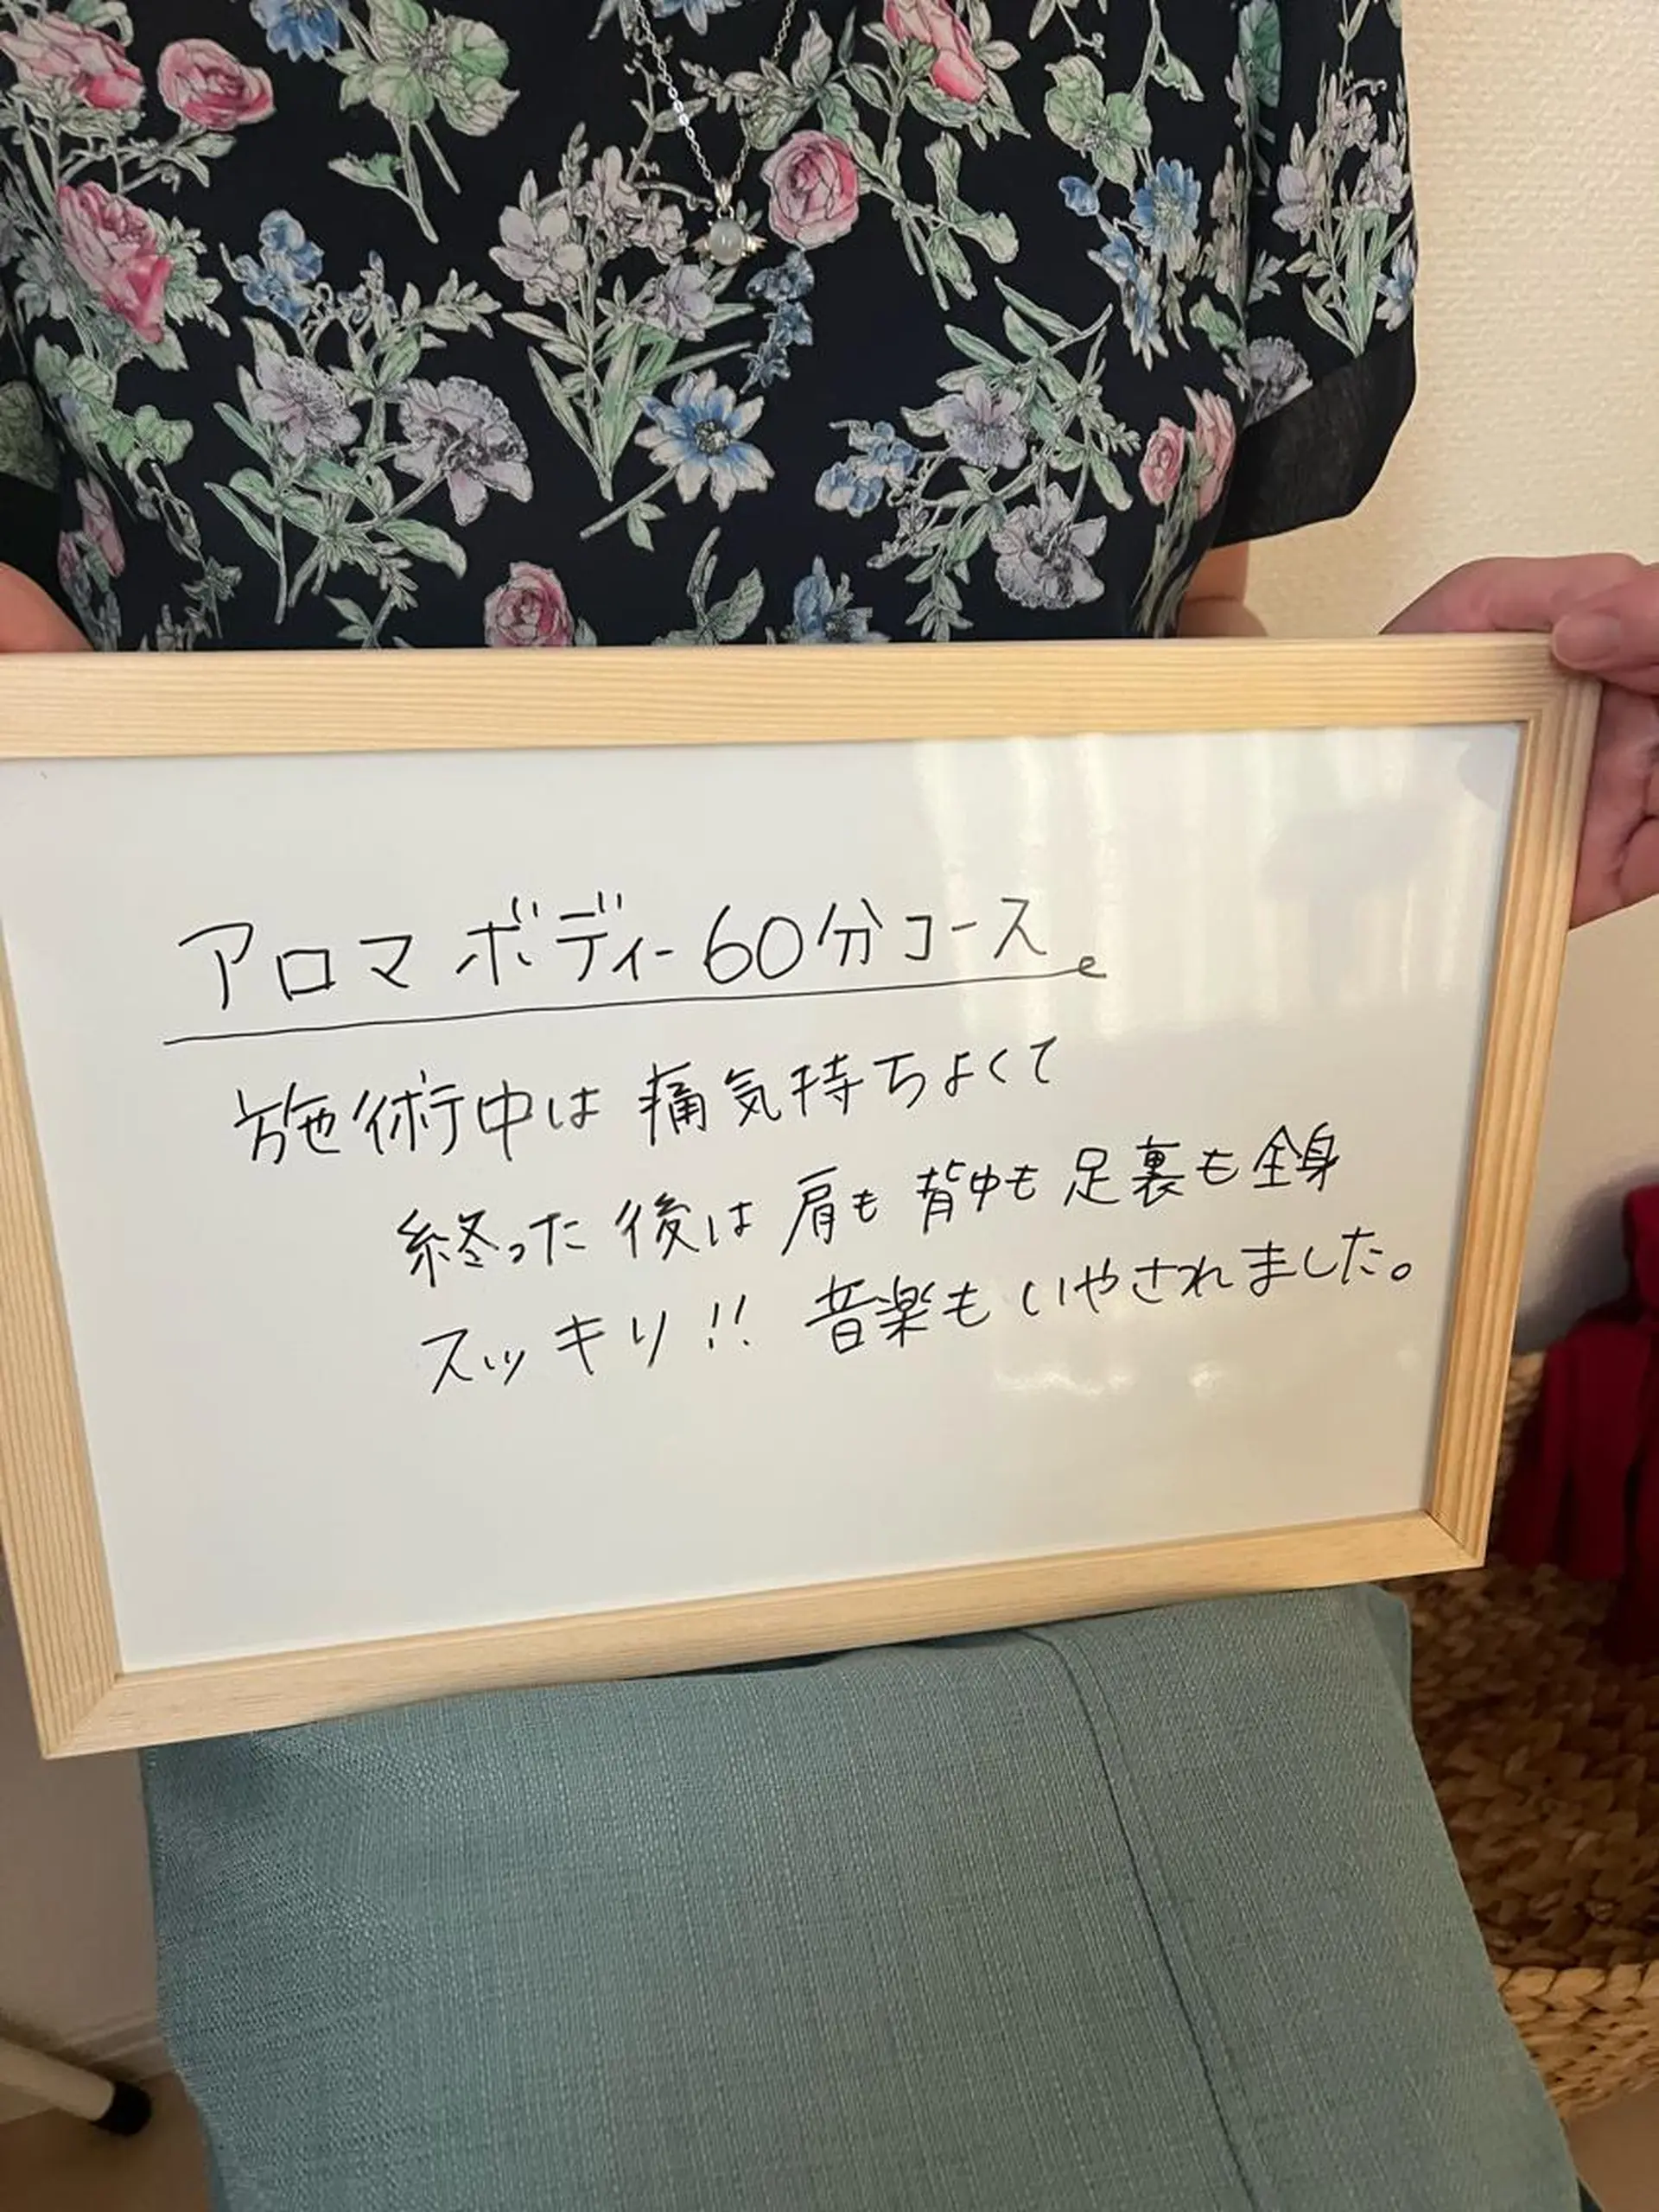 アロマボディー60分コース
施術中は痛気持ちよくて
終った後は肩も背中も足裏も全身
スッキリ!! 音楽もいやされました。